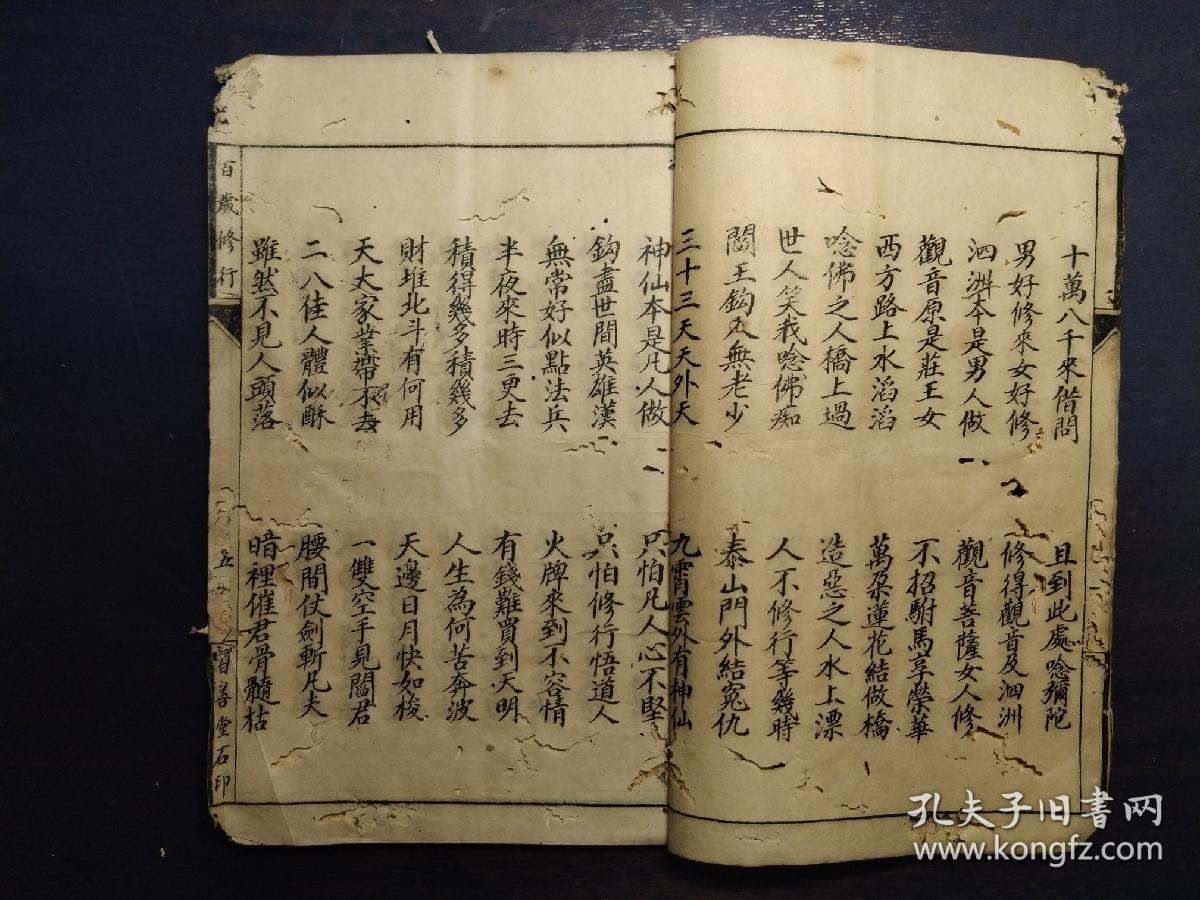 十萬八千來借問 且到此處唸彌陀
男好修來女好修 修得觀音及泗洲
泗洲本是男人做 觀音菩薩女人修
觀音原是莊王女 不招駙馬享榮華
西方路上水滔滔 萬朶蓮花結做橋
唸佛之人橋上過 造惡之人水上漂
世人笑我唸佛痴 人不修行等幾時
閻王鈎人無老少 泰山門外結寃仇
三十三天天外天 九霄雲外有神仙
神仙本是凡人做 只怕凡人心不堅
鈎盡世間英雄漢 只怕修行悟道人
無常好似點法兵 火牌來到不容情
半夜來時三更去 有錢難買到天明
積得幾多積幾多 人生為何苦奔波
財堆北斗有何用 天邊日月快如梭
天大家業帶不去 一雙空手見閻君
二八佳人體似酥 腰間仗劍斬凡夫
雖然不見人頭落 暗裡催君骨髓枯
百歲修行 五 寶善堂石印
孔夫子旧書网
www.kongfz.com